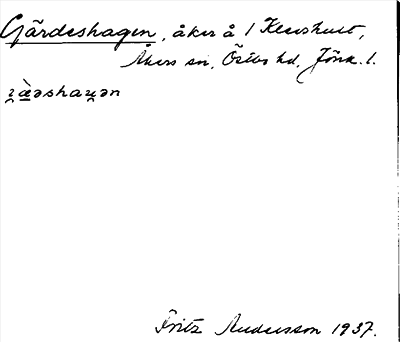 Gärdeshagen, åker å 1 Kleushult,
Åkers sn, Östbo hd, Jönk. l.
ꝛæ̀əshaꭒən
Fritz Andersson 1937.